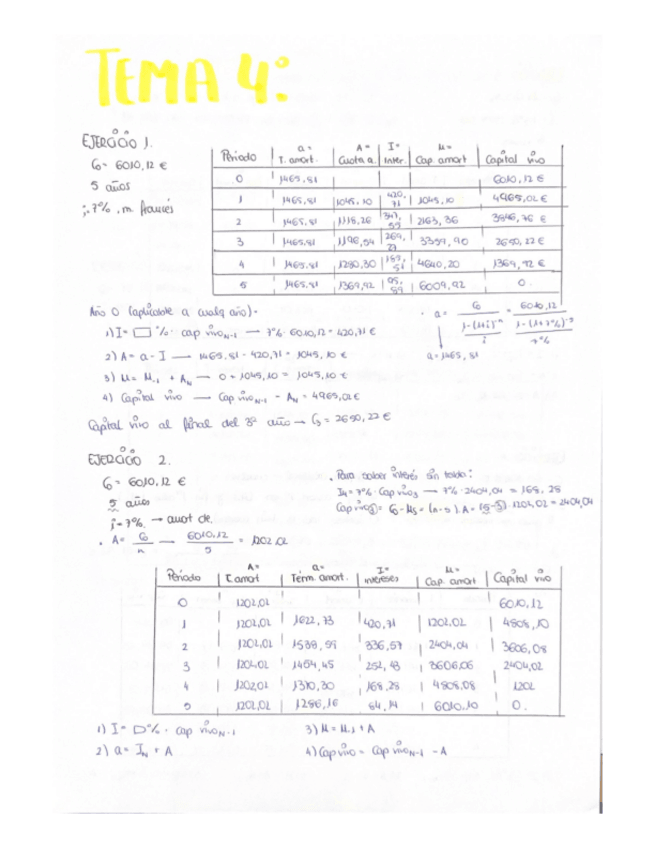 TEMA 4:
EJERCICIO 1.
C₀= 6010,12 €
5 años
i: 7%, m. francés
Periodo | a= T. amort. | A= Cuota a. | I= Inter. | M= Cap. amort | Capital vivo
0 | 1465,81 | | | | 6010,12 €
1 | 1465,81 | 1045,10 | 420,71 | 1045,10 | 4965,02 €
2 | 1465,81 | 1118,26 | 347,55 | 2163,36 | 3846,76 €
3 | 1465,81 | 1196,54 | 269,27 | 3359,90 | 2650,22 €
4 | 1465,81 | 1280,30 | 185,51 | 4640,20 | 1369,92 €
5 | 1465,81 | 1369,92 | 95,89 | 6009,92 | 0.
Año 0 (aplicable a cualq año)·
1) I= □ %· cap vivo N-1 → 7%· 6010,12 = 420,71 €
2) A= a - I → 1465,81 - 420,71 = 1045,10 €
3) M= M-1 + A_N → 0 + 1045,10 = 1045,10 €
4) Capital vivo → Cap vivo N-1 - A_N = 4965,02 €
· a= C₀ / (1-(1+i)^-n / i) = 6010,12 / (1-(1+7%)^-5 / 7%)
a= 1465,81
Capital vivo al final del 3º año → C₃ = 2650,22 €
EJERCICIO 2.
C₀= 6010,12 €
5 años
i= 7%. → cuot de.
· A= C₀/n → 6010,12/5 = 1202,02
· Para saber interés sin tabla:
I₄= 7%· Cap vivo₃ → 7%· 2404,04 = 168,28
Cap vivo₃= C₀ - M₃ = (n-s)· A= (5-3)· 1202,02 = 2404,04
Periodo | A= T. amort | a= Térm. amort. | I= intereses | M= Cap. amort | Capital vivo
0 | 1202,02 | | | | 6010,12
1 | 1202,02 | 1622,73 | 420,71 | 1202,02 | 4808,10
2 | 1202,02 | 1538,59 | 336,57 | 2404,04 | 3606,08
3 | 1202,02 | 1454,45 | 252,43 | 3606,06 | 2404,02
4 | 1202,02 | 1370,30 | 168,28 | 4808,08 | 1202
5 | 1202,02 | 1286,16 | 84,14 | 6010,10 | 0.
1) I= □%· cap vivo N-1
2) a= I_N + A
3) M= M-1 + A
4) Cap vivo = Cap vivo N-1 - A